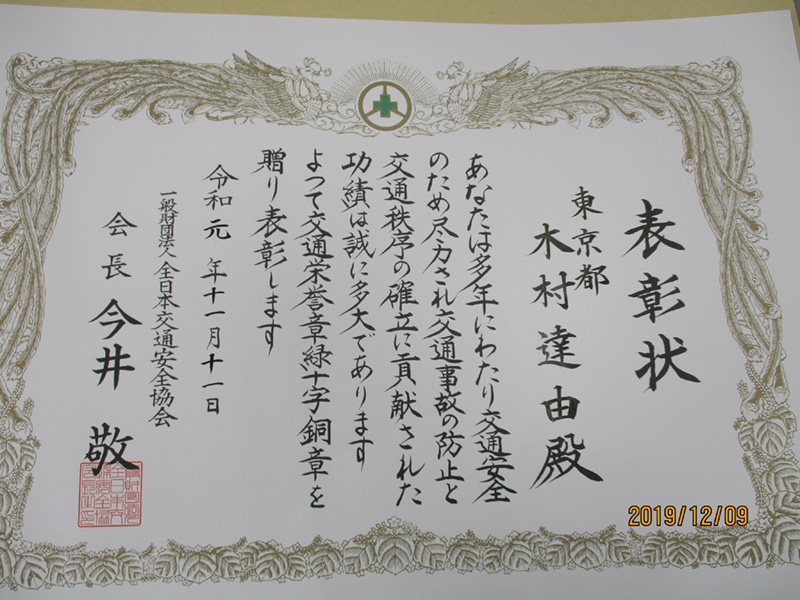 表彰状
東京都
木村達由殿
あなたは多年にわたり交通安全
のため尽力され交通事故の防止と
交通秩序の確立に貢献された
功績は誠に多大であります
よつて交通栄誉章緑十字銅章を
贈り表彰します
令和元年十一月十一日
一般財団法人全日本交通安全協会
会長今井敬
2019/12/09